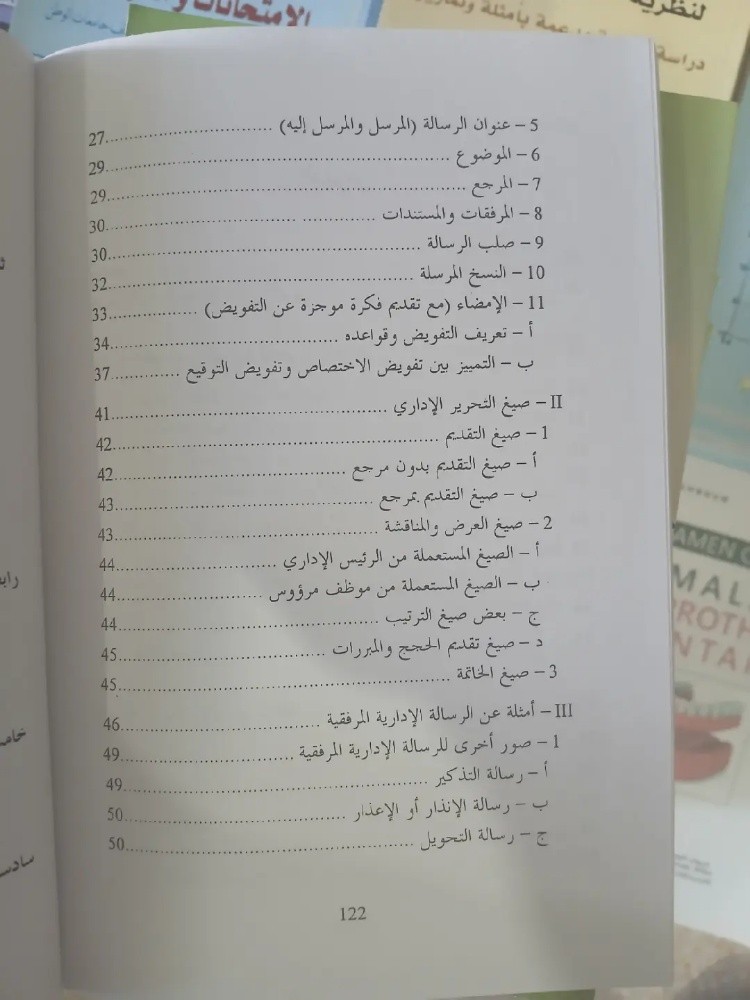 الامتحانات و
لنظرية
دراسة
عمة بأمثلة
5 – عنوان الرسالة (المرسل والمرسل إليه) ............................27
6 – الموضوع ............................29
7 – المرجع ............................29
8 – المرفقات والمستندات ............................30
9 – صلب الرسالة ............................30
10 – النسخ المرسلة ............................32
11 – الإمضاء (مع تقديم فكرة موجزة عن التفويض) ............................33
أ – تعريف التفويض وقواعده ............................34
ب – التمييز بين تفويض الاختصاص وتفويض التوقيع ............................37
II – صيغ التحرير الإداري ............................41
1 – صيغ التقديم ............................42
أ – صيغ التقديم بدون مرجع ............................42
ب – صيغ التقديم بمرجع ............................43
2 – صيغ العرض والمناقشة ............................43
أ – الصيغ المستعملة من الرئيس الإداري ............................44
ب – الصيغ المستعملة من موظف مرؤوس ............................44
ج – بعض صيغ الترتيب ............................44
د – صيغ تقديم الحجج والمبررات ............................45
3 – صيغ الخاتمة ............................45
III – أمثلة عن الرسالة الإدارية المرفقية ............................46
1 – صور أخرى للرسالة الإدارية المرفقية ............................49
أ – رسالة التذكير ............................49
ب – رسالة الإنذار أو الإعذار ............................50
ج – رسالة التحويل ............................50
122
رابع
خامس
سادس
AMEN
MAL
PROTH
NTA